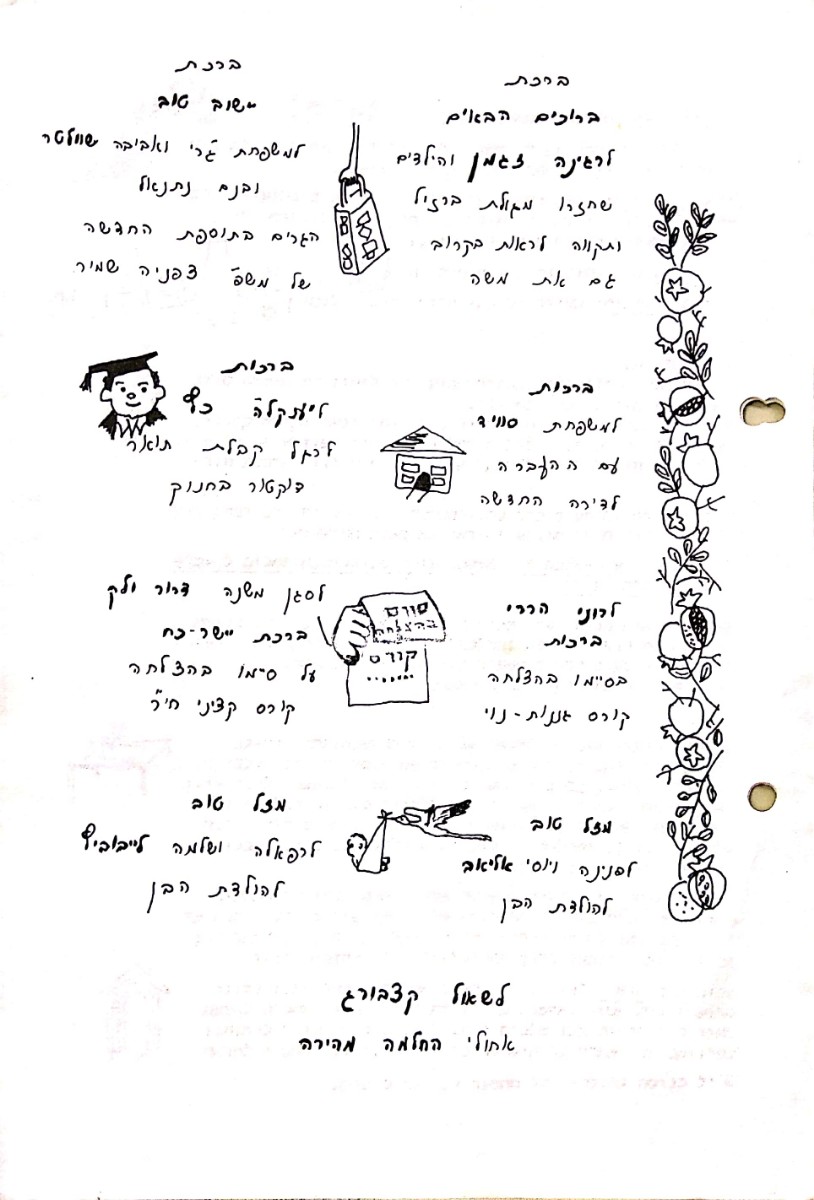 ברכת
ברוכים הבאים
לרגינה זגמן והילדים
שחזרו מגולת ברזיל
ותקווה לראות בקרוב
גם את משה
ברכת
ישוב טוב
למשפחת ג'רי ואביבה שוולטר
ובנם נתנאל
הגרים בתוספת החדשה
של משפ' צפניה שמיר
ברכות
למשפחת סוויד
עם ההעברה
לדירה החדשה
ברכות
ליענקל'ה כץ
לרגל קבלת תואר
דוקטור בחנוך
לרוני הררי
ברכות
בסיימו בהצלחה
קורס גננות-נוי
סיים
בהצלחה
קורס
לסגן משנה דרור ולק
ברכת יישר-כח
על סיימו בהצלחה
קורס קציני חי"ר
מזל טוב
לפנינה ויוסי אליאב
להולדת הבן
מזל טוב
לרפאלה ושלמה לייבוביץ
להולדת הבן
לשאול קצבורג
איחולי החלמה מהירה